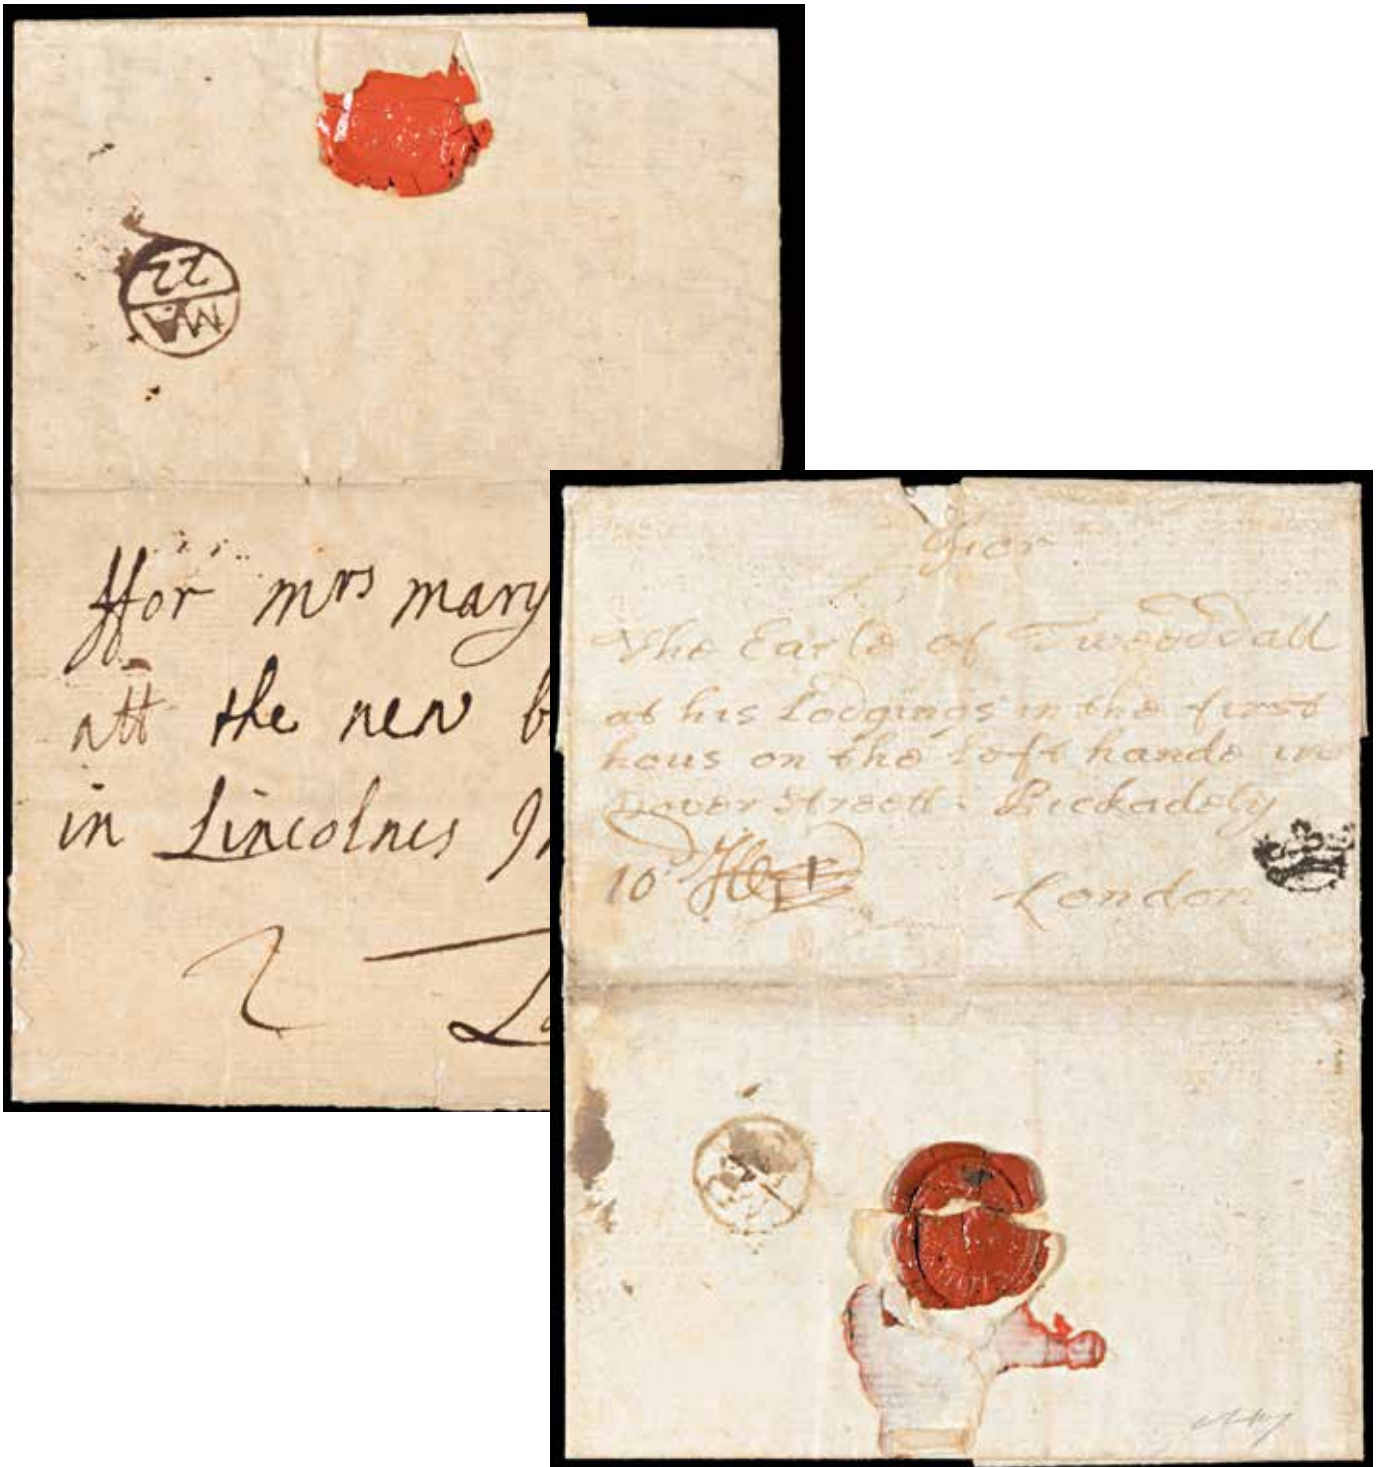 MA
22
ffor mrs mary
att the new b
in Lincolnes In
2 Lo
ffor
The Earle of Tweeddall
at his Lodgings in the first
hous on the left hande in
Dover Streett: Pickadely
10
London